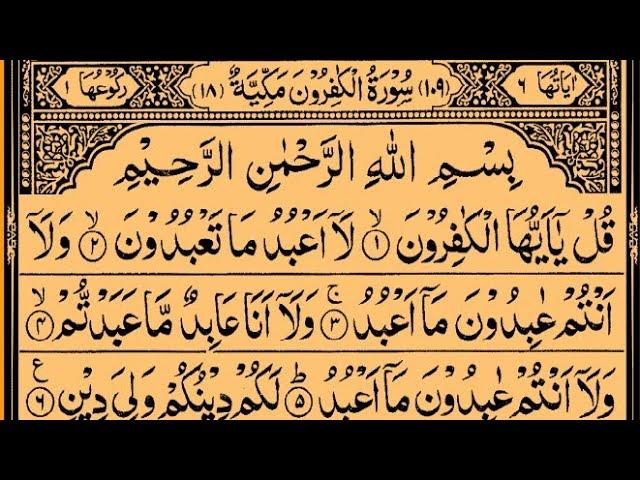 اٰيَاتُهَا ٦ (١٠٩) سُوْرَةُ الْكٰفِرُوْنَ مَكِّيَّةٌ (١٨) رُكُوْعُهَا ١
بِسْمِ اللّٰهِ الرَّحْمٰنِ الرَّحِيْمِ
قُلْ يٰۤاَيُّهَا الْكٰفِرُوْنَ ۙ‏ ١ لَاۤ اَعْبُدُ مَا تَعْبُدُوْنَ ۙ‏ ٢ وَلَاۤ
اَنْتُمْ عٰبِدُوْنَ مَاۤ اَعْبُدُ ۚ‏ ٣ وَلَاۤ اَنَا عَابِدٌ مَّا عَبَدْتُّمْ ۙ‏ ٤
وَلَاۤ اَنْتُمْ عٰبِدُوْنَ مَاۤ اَعْبُدُ ؕ‏ ٥ لَكُمْ دِيْنُكُمْ وَلِيَ دِيْنِ ٦ ع